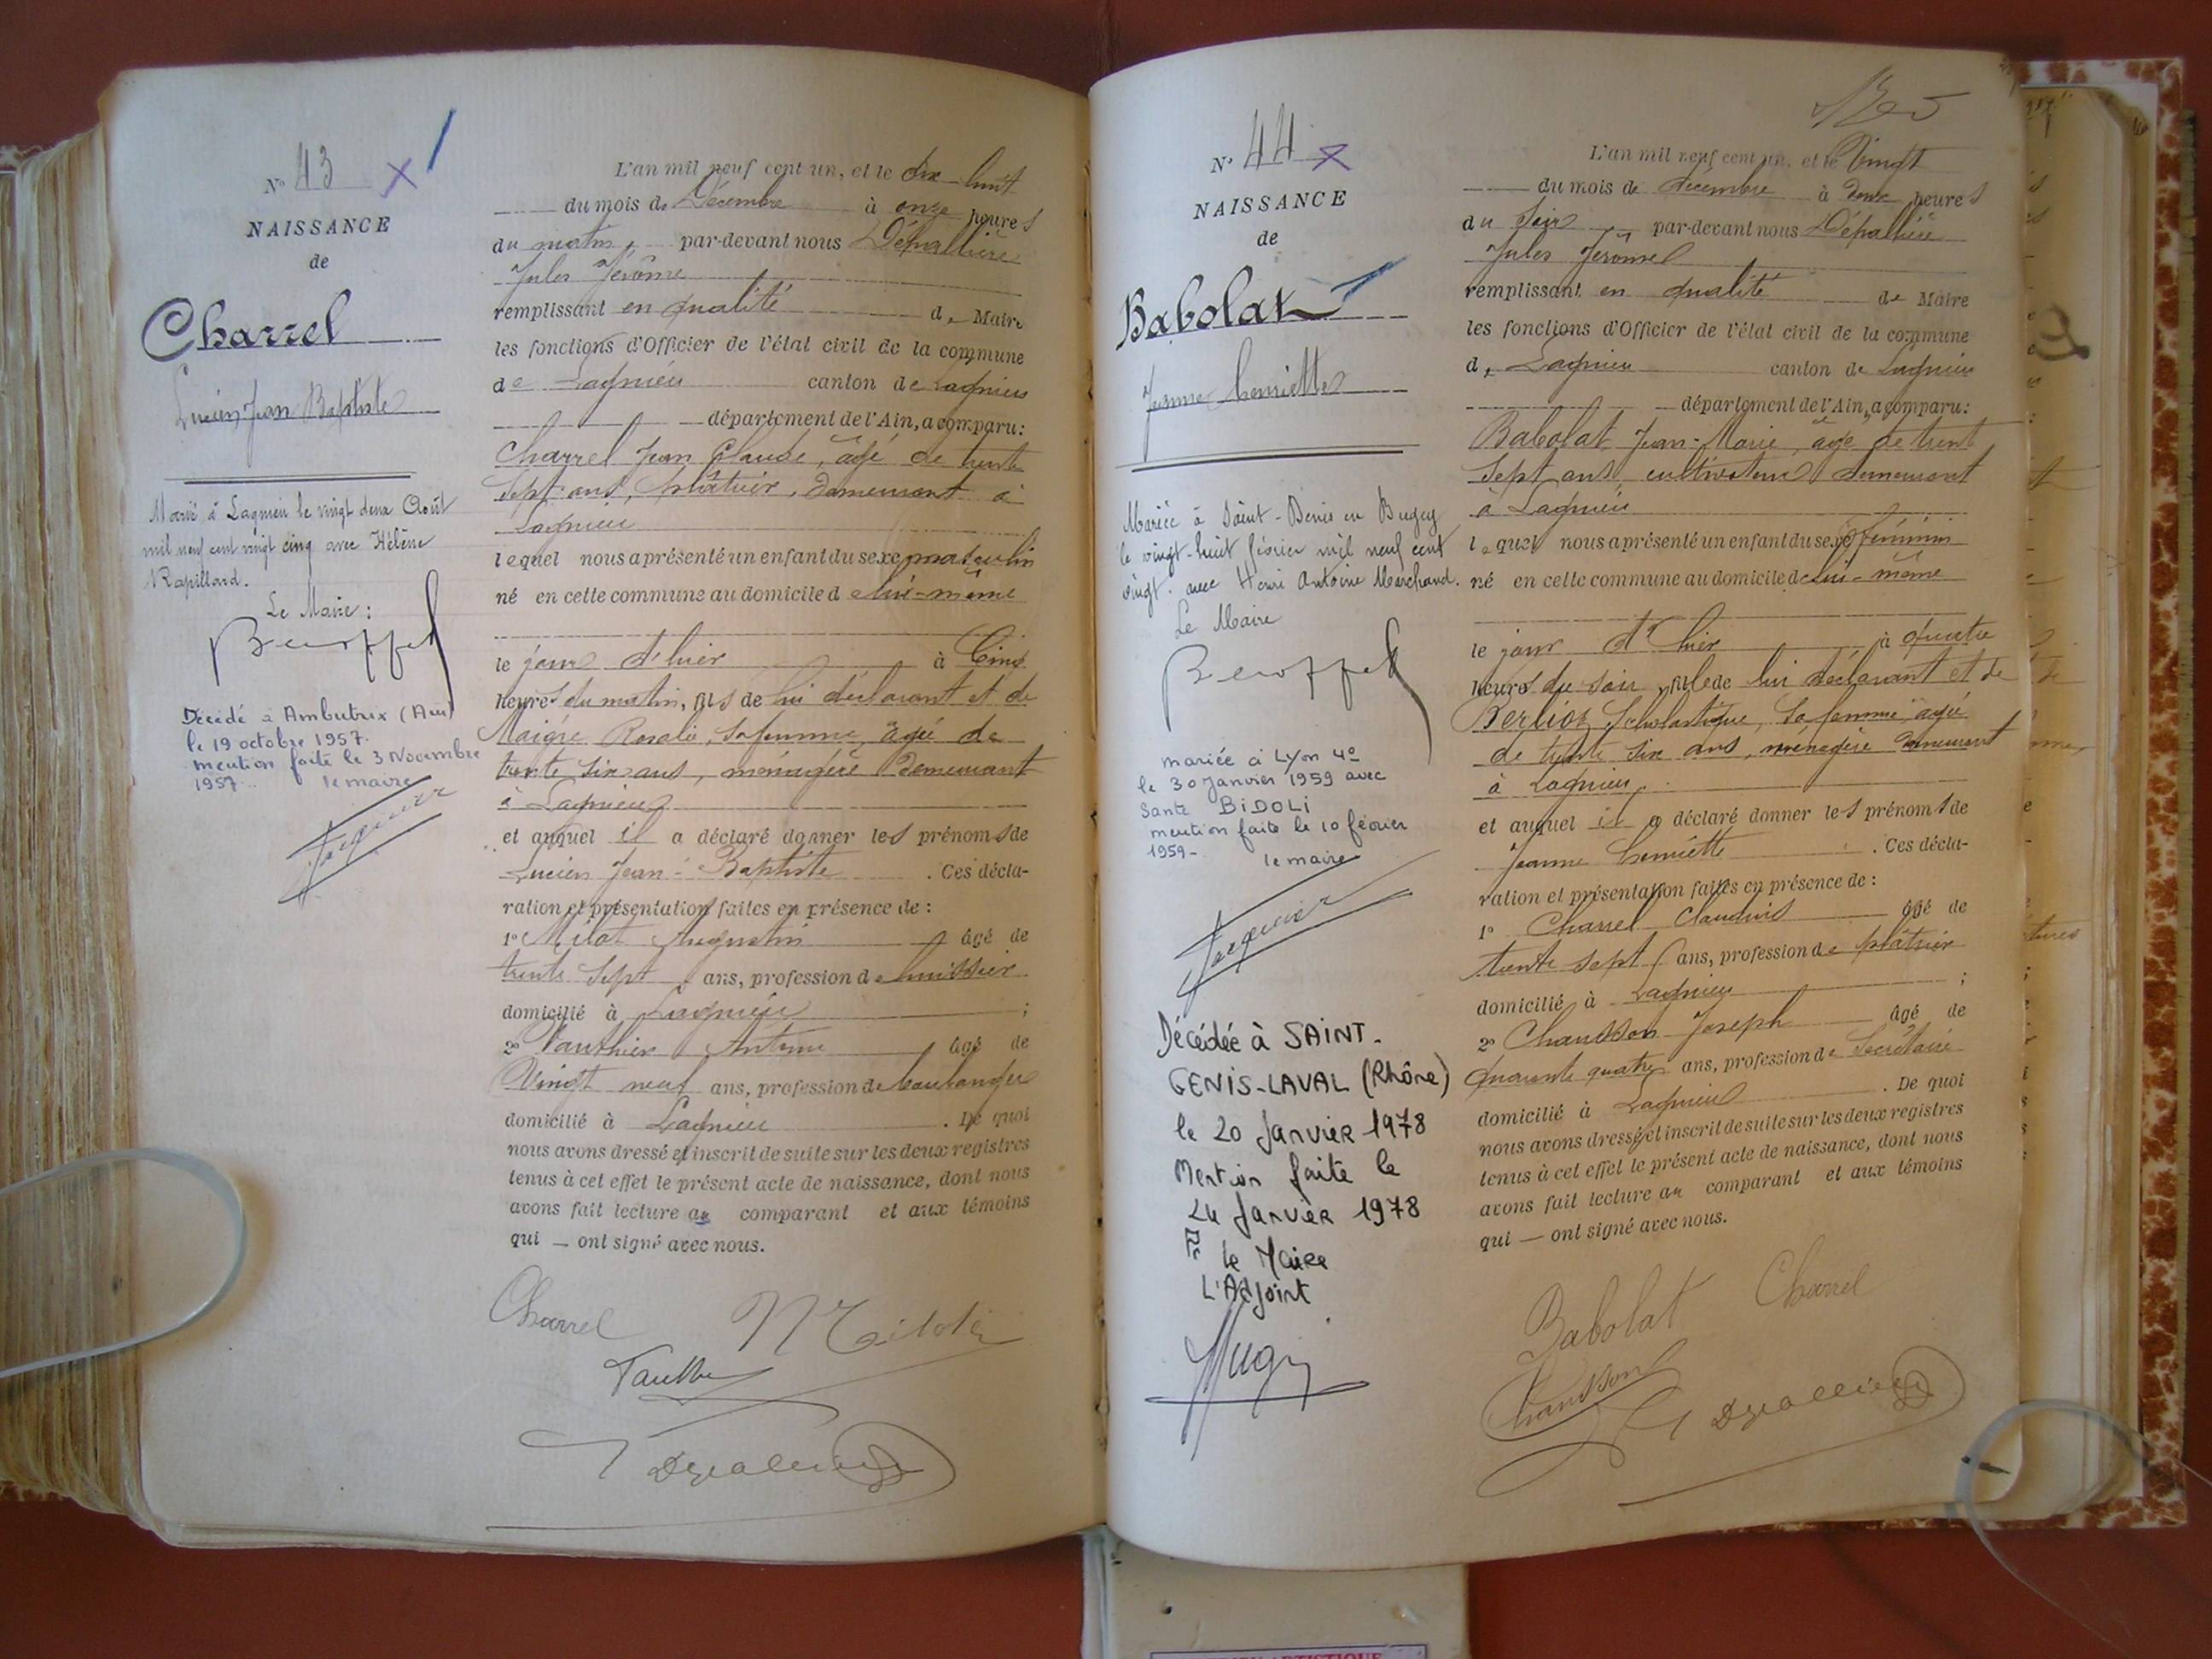 N° 43
NAISSANCE
de
Charrel
Lucien Jean Baptiste
Marié à Lagnieu le vingt deux Août
mil neuf cent vingt cinq avec Hélène
Rapillard.
Le Maire :
Décédé à Ambutrix (Ain)
le 19 octobre 1957.
mention faite le 3 Novembre
1957. le maire
L'an mil neuf cent un, et le dix-huit
du mois de Décembre à onze heures
du matin, par-devant nous Dépallière
Jules Jérôme
remplissant en qualité de Maire
les fonctions d'Officier de l'état civil de la commune
de Lagnieu canton de Lagnieu
département de l'Ain, a comparu :
Charrel Jean Claude, âgé de trente
sept ans, plâtrier, demeurant à
Lagnieu
lequel nous a présenté un enfant du sexe masculin
né en cette commune au domicile de lui-même
le jour d'hier à Cinq
heures du matin, fils de lui déclarant et de
Maigre Rosalie, sa femme, âgée de
trente six ans, ménagère demeurant
à Lagnieu
et auquel il a déclaré donner les prénoms de
Lucien Jean-Baptiste . Ces décla-
ration et présentation faites en présence de :
1° Augustin âgé de
trente sept ans, profession de huissier
domicilié à Lagnieu ;
2° Vauthier Antoine âgé de
Vingt neuf ans, profession de boulanger
domicilié à Lagnieu . De quoi
nous avons dressé et inscrit de suite sur les deux registres
tenus à cet effet le présent acte de naissance, dont nous
avons fait lecture au comparant et aux témoins
qui — ont signé avec nous.
Charrel
N° 44
NAISSANCE
de
Babolat
Jeanne henriette
Mariée à Saint-Denis en Bugey
le vingt-huit février mil neuf cent
vingt. avec Henri Antoine Marchand.
Le Maire
mariée à Lyon 4e
le 30 Janvier 1959 avec
Sante BiDOLi
mention faite le 10 février
1959- le maire
Décédée à SAINT-
GENIS-LAVAL (Rhône)
le 20 Janvier 1978
Mention faite le
24 Janvier 1978
Pr le Maire
L'Adjoint
L'an mil neuf cent un, et le Vingt
du mois de décembre à deux heures
du soir par-devant nous Dépallière
Jules Jérôme
remplissant en qualité de Maire
les fonctions d'Officier de l'état civil de la commune
de Lagnieu canton de Lagnieu
département de l'Ain, a comparu :
Babolat Jean-Marie, âgé de trente
sept ans, cultivateur demeurant
à Lagnieu
lequel nous a présenté un enfant du sexe féminin
né en cette commune au domicile de lui-même
le jour d'hier à quatre
heures du soir, fille de lui déclarant et de
Berlioz Scholastique, sa femme âgée
de trente six ans, ménagère demeurant
à Lagnieu,
et auquel il a déclaré donner les prénoms de
Jeanne henriette . Ces décla-
ration et présentation faites en présence de :
1° Charrel Claudius âgé de
trente sept ans, profession de plâtrier
domicilié à Lagnieu ;
2° Chausson Joseph âgé de
quarante quatre ans, profession de Secrétaire
domicilié à Lagnieu . De quoi
nous avons dressé et inscrit de suite sur les deux registres
tenus à cet effet le présent acte de naissance, dont nous
avons fait lecture au comparant et aux témoins
qui — ont signé avec nous.
Babolat Charrel
Chausson